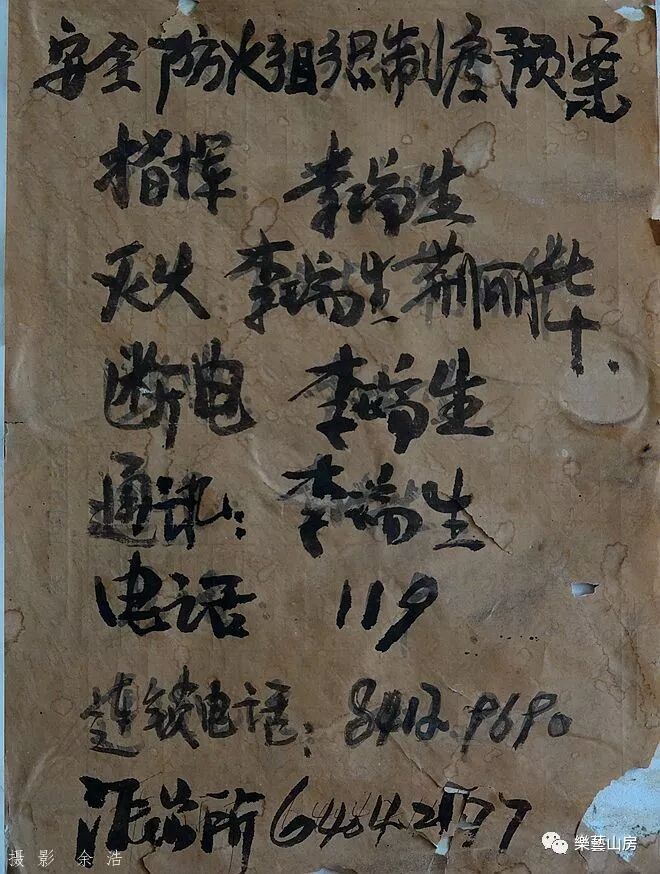 安全防火组织制度预案
指挥 李瑞生
灭火 李瑞生 荆丽华
断电 李瑞生
通讯: 李瑞生
电话 119
连锁电话: 8412.9690
派出所 64842177
摄影 余浩
樂藝山房